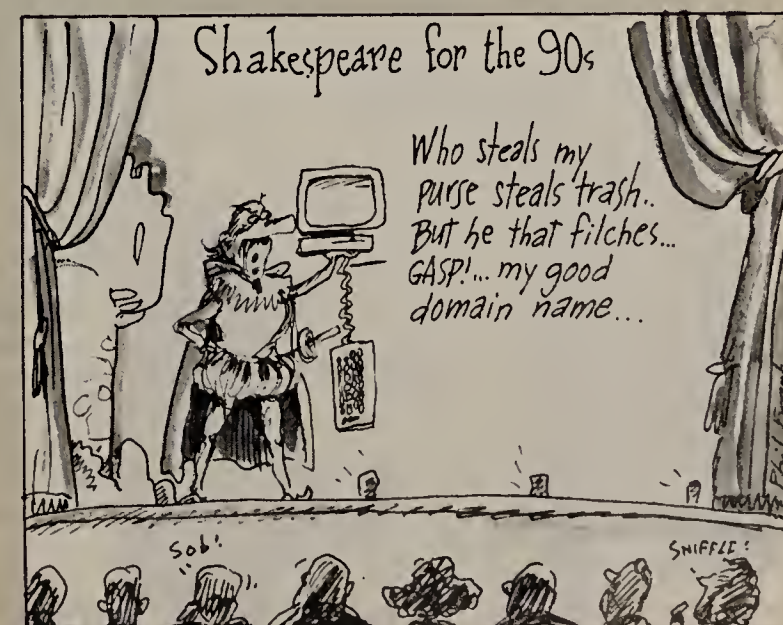 Shakespeare for the 90s
Who steals my
purse steals trash..
But he that filches...
GASP!... my good
domain name...
Sob!
SNIFFLE!